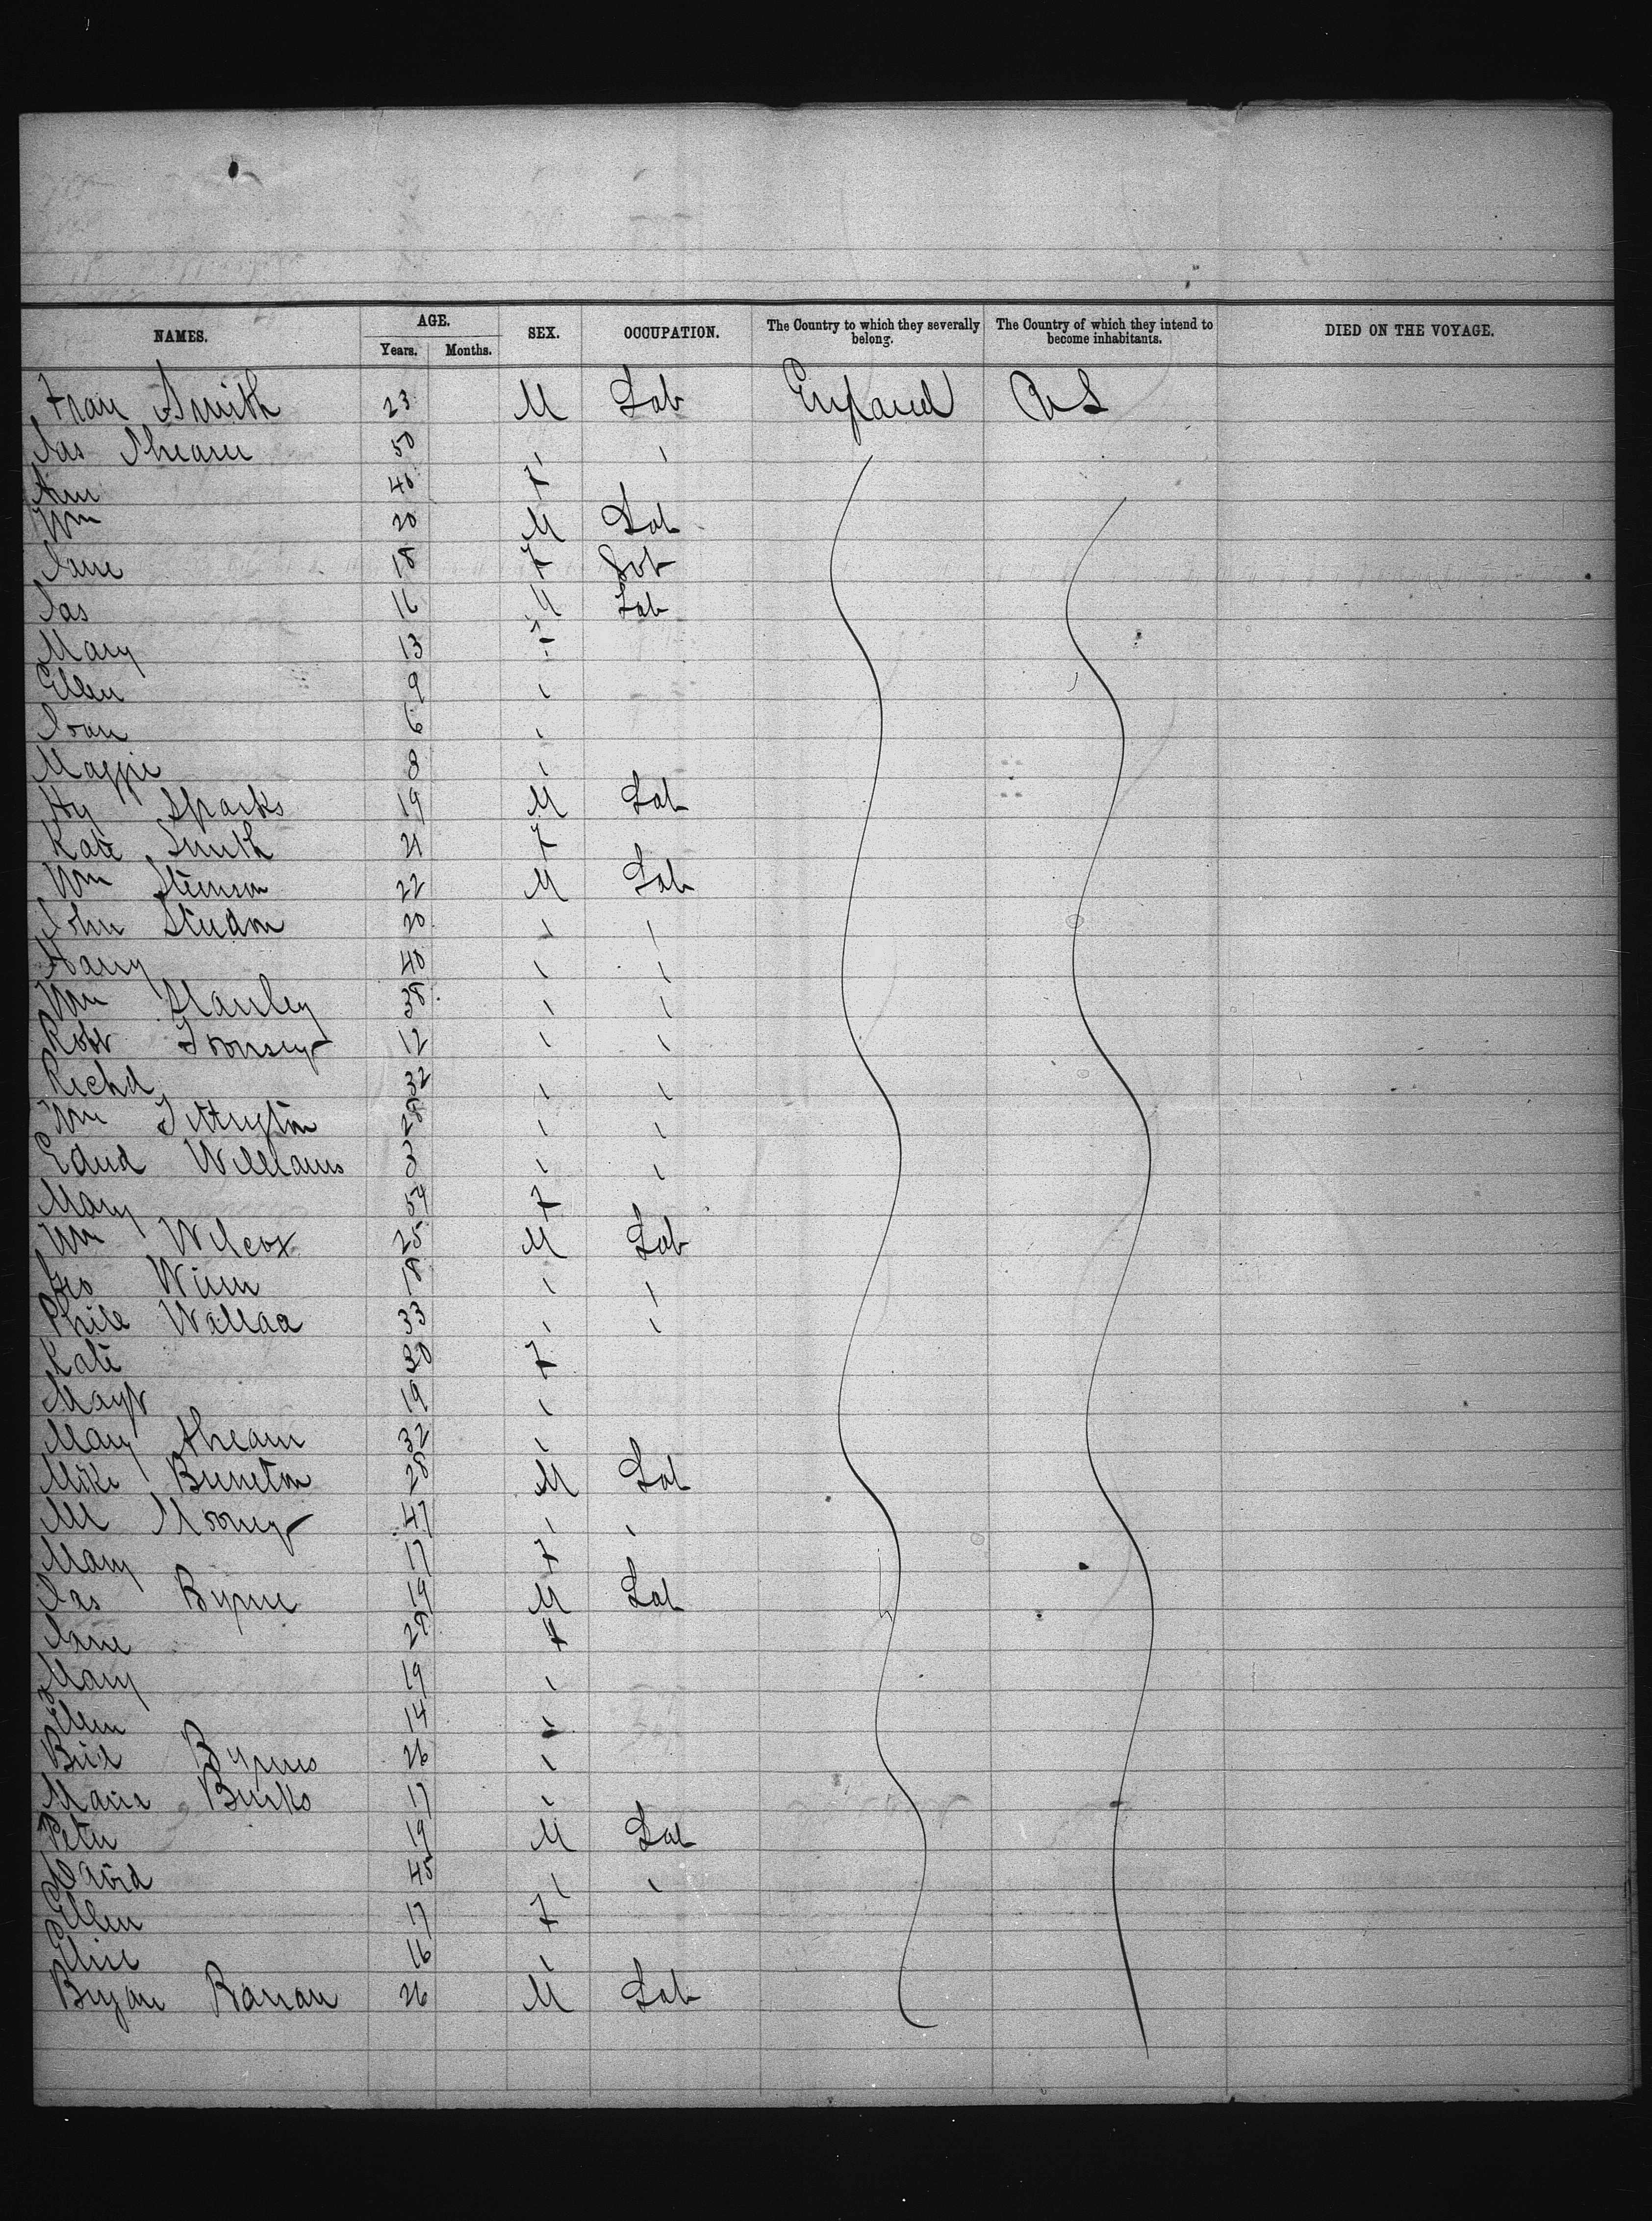 NAMES. AGE. SEX. OCCUPATION. The Country to which they severally belong. The Country of which they intend to become inhabitants. DIED ON THE VOYAGE.
Years. Months.
Fran Smith 23 M Lab England US
Jas Shearer 50 " "
Ann 40 F
Wm 20 M Lab
Jane 18 F
Jas 16 M Lab
Mary 13 F
Ellen 9 "
Joan 6 "
Maggie 8 "
Hy Sparks 19 M Lab
Kate Smith 21 F
Wm 22 M Lab
John 20 " "
Harry 40 " "
Wm Stanley 38 " "
Robt 12 " "
Richd 32 " "
Wm 28 " "
Edwd Williams 3 " "
Mary 54 F
Wm Wilcox 25 M Lab
Geo 18 " "
Phill Wallace 33 " "
Kate 30 F
Margt 19 "
Mary Ahearn 32 "
Mike 28 M Lab
M Mooney 47 " "
Mary 17 F
Jas Byrne 19 M Lab
Jane F
Mary 19 "
Ellen 14 "
Brid Byrnes 26 "
Maria Burke 17 "
Peter 19 M Lab
David 45 " "
Ellen 17 F
16 "
Bryan 26 M Lab